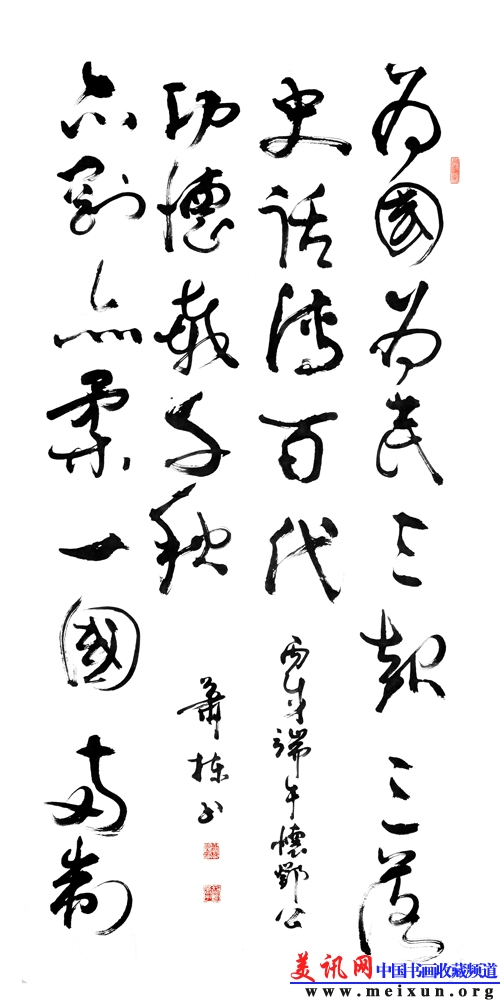 为國为民三起三落
史话传百代
丙戌端午懷鄧公
亦刚亦柔一國两制
功德載千秋
蕭栋书
美讯网 中国书画收藏频道
www.meixun.org